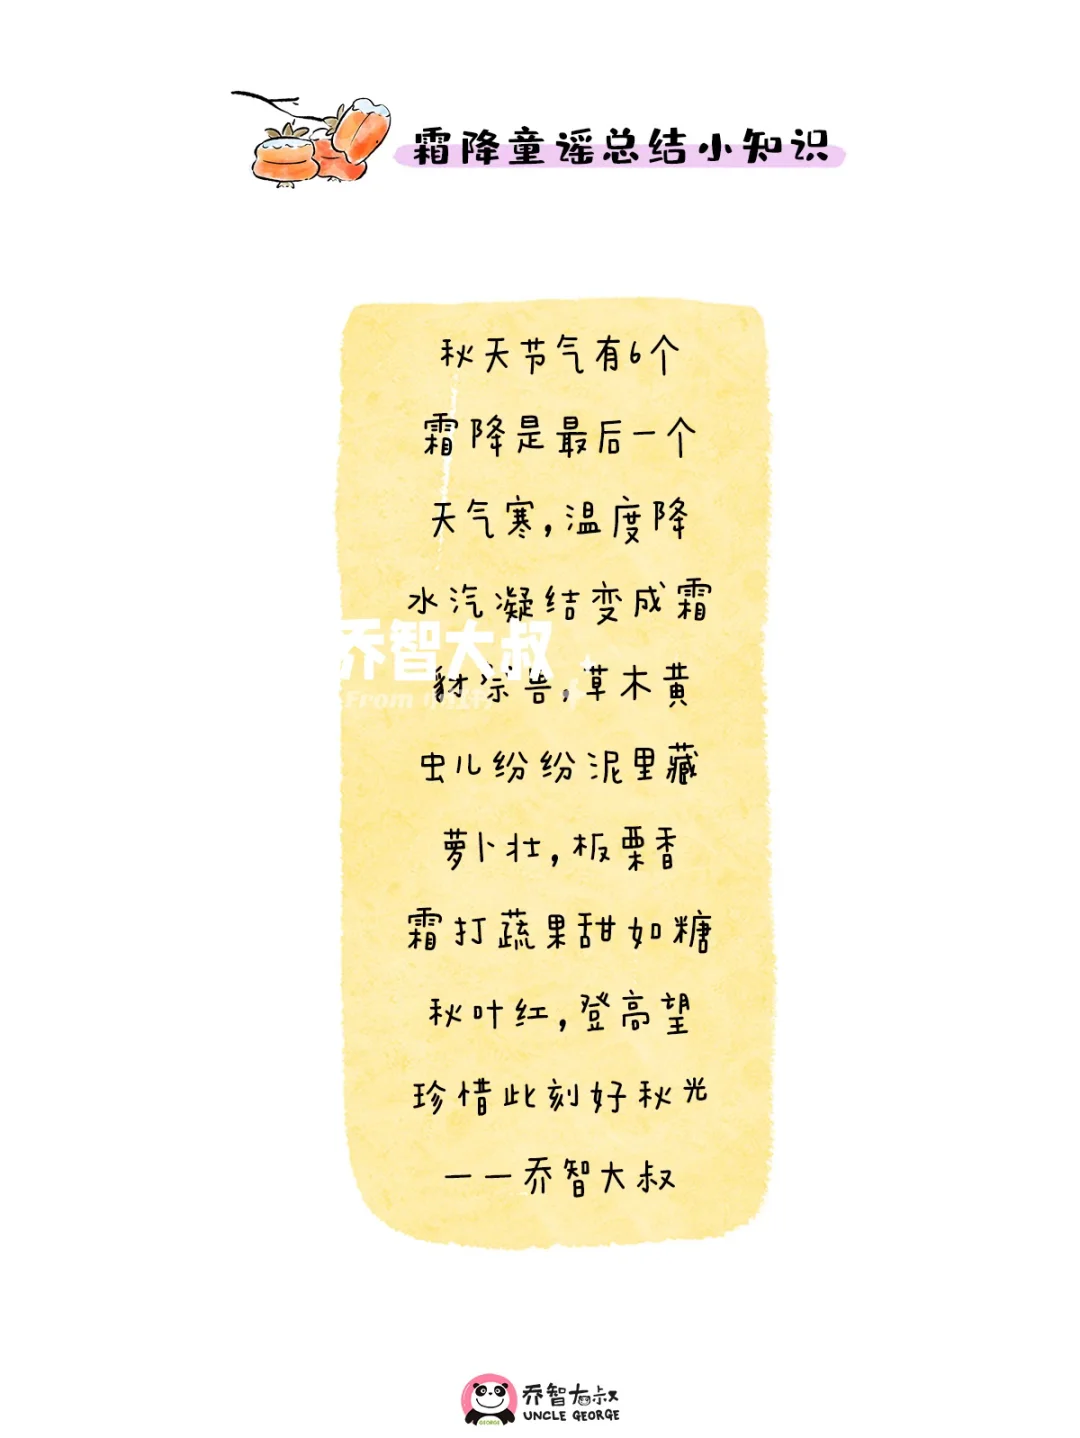 霜降童谣总结小知识
秋天节气有6个
霜降是最后一个
天气寒,温度降
水汽凝结变成霜
乔智大叔
豺 兽,草木黄
From
虫儿纷纷泥里藏
萝卜壮,板栗香
霜打蔬果甜如糖
秋叶红,登高望
珍惜此刻好秋光
——乔智大叔
乔智大叔
UNCLE GEORGE
GEORGE